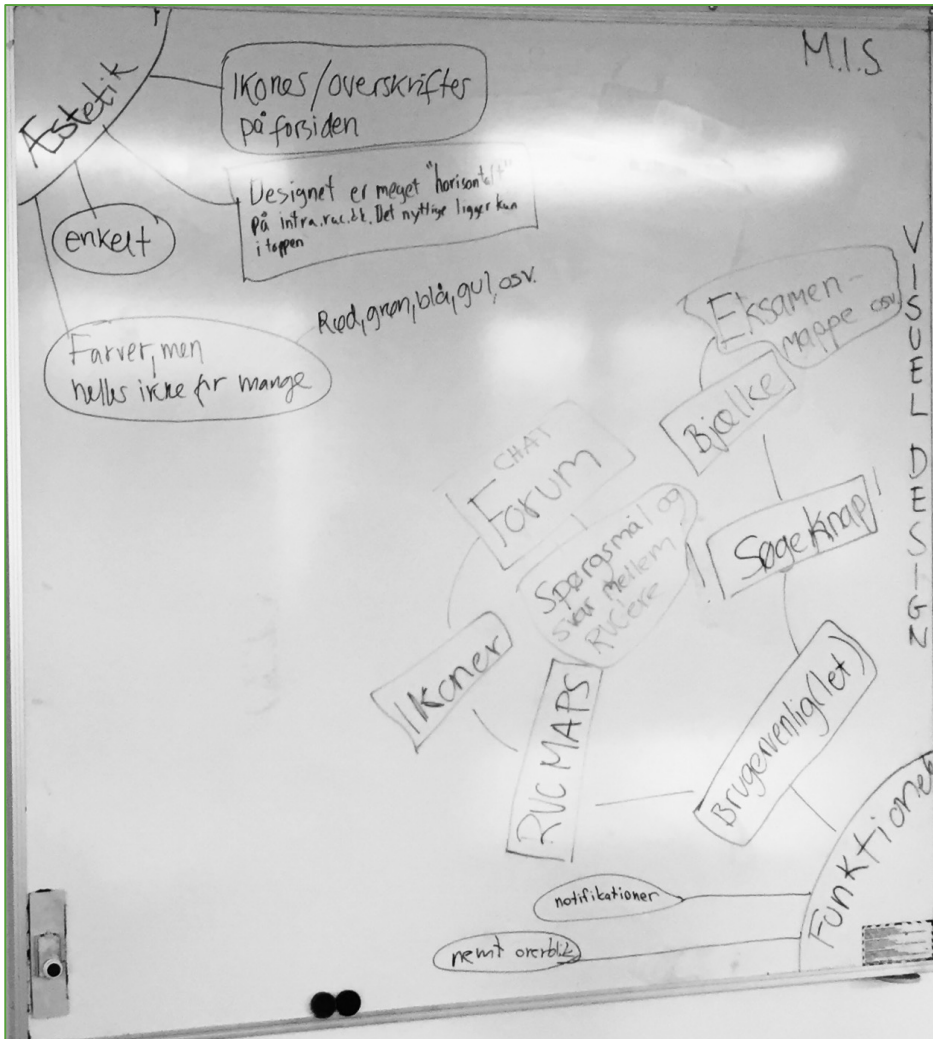 M.I.S
Æstetik
Ikones/overskriftes
på forsiden
Designet er meget "horisontalt"
på intra.ruc.dk. Det nyttige ligger kun
i toppen
enkelt
Rød, grøn, blå, gul, osv.
Farver, men
helles ikke for mange
VISUEL DESIGN
Eksamen-
mappe osv.
Bjælke
CHAT
Forum
Søgeknap
Spørgsmål og
svar mellem
RUCere
Ikoner
RUC MAPS
Brugervenlig(let)
Funktionel
notifikationer
nemt overblik